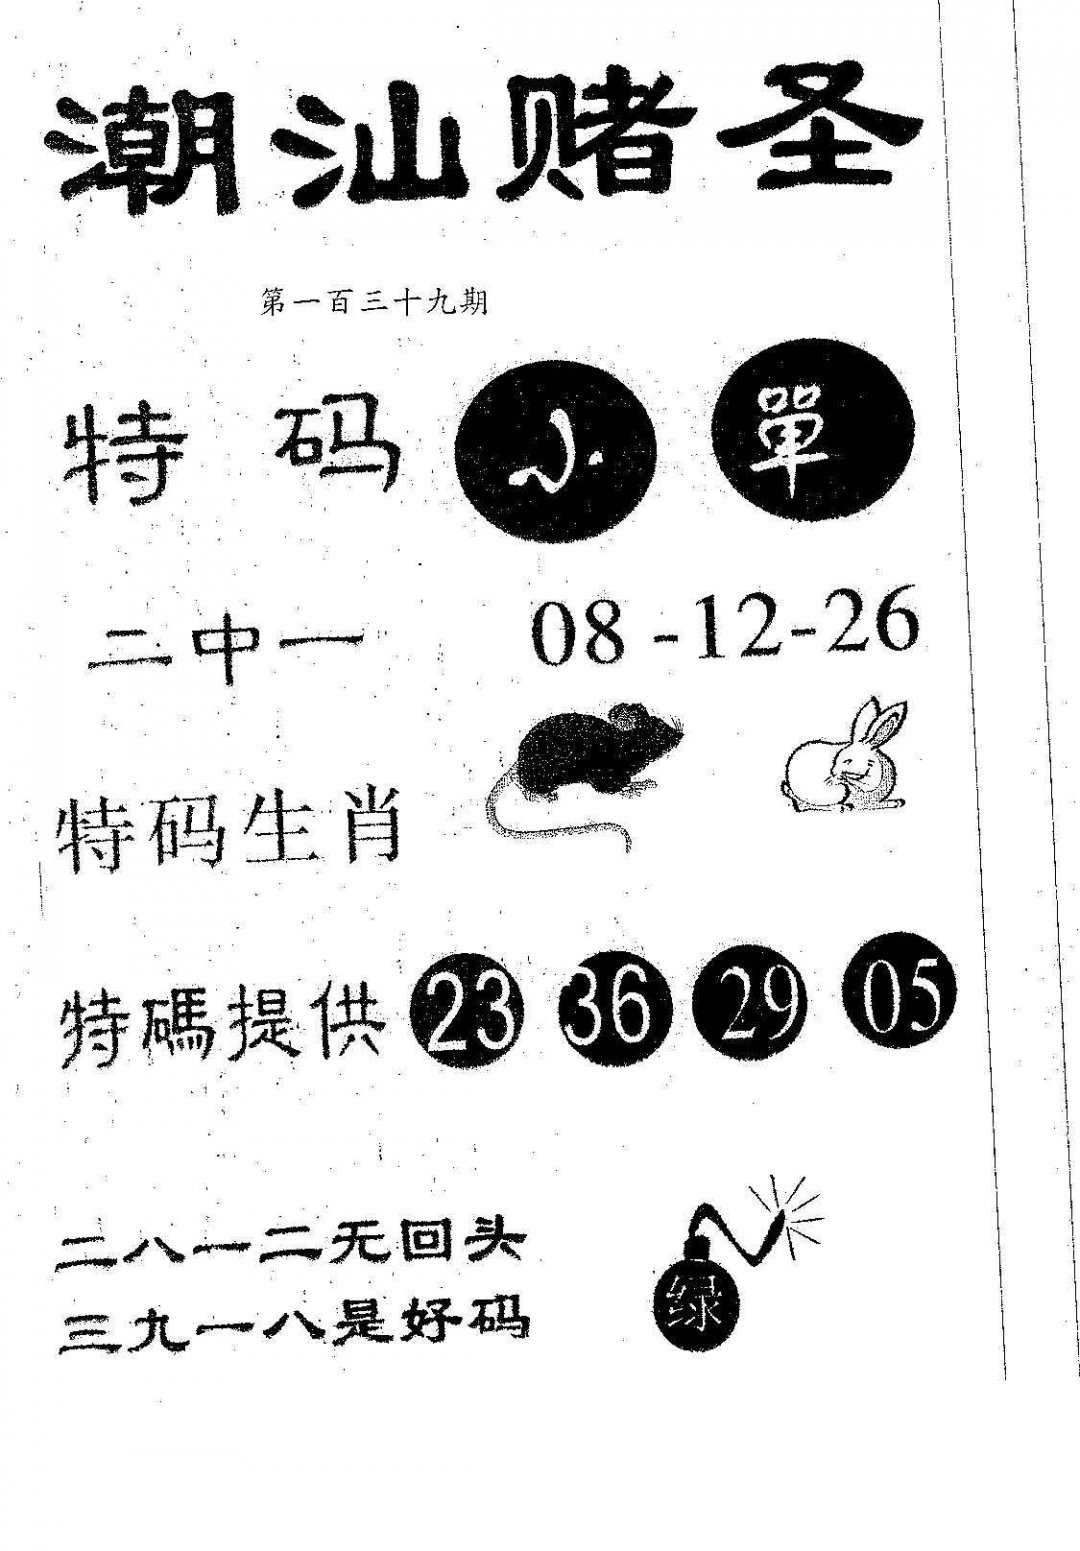 潮汕赌圣
第一百三十九期
特码 小 單
二中一 08-12-26
特码生肖
特碼提供 23 36 29 05
二八一二无回头
三九一八是好码
绿